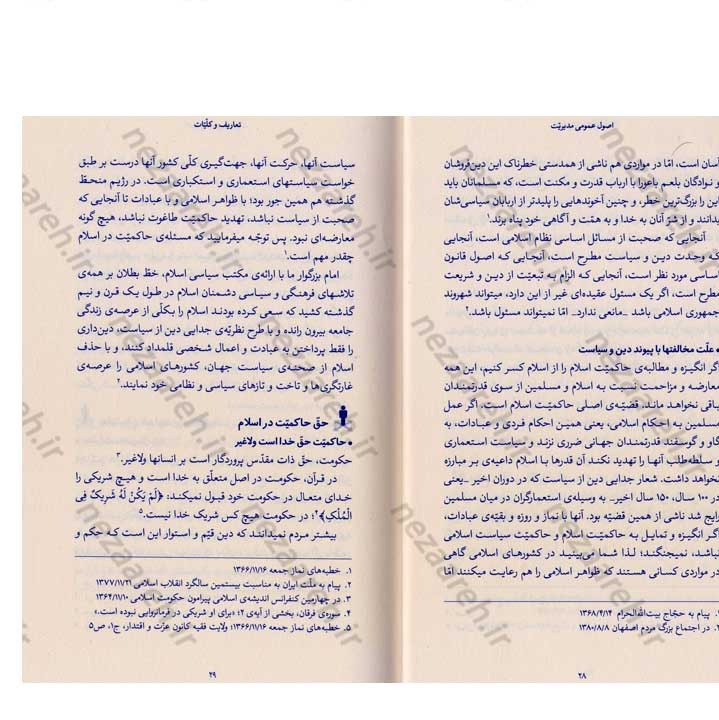 اصول عمومی مدیریّت
آسان است، امّا در مواردی هم ناشی از همدستی خطرناک این دین‌فروشان
و نوادگان بلعم باعورا با ارباب قدرت و مکنت است، که مسلمانان باید
این را بزرگ‌ترین خطر، و چنین آخوندهایی را پلیدتر از اربابان سیاسی‌شان
بدانند و از شرّ آنان به خدا و به همّت و آگاهی خود پناه برند.۱
آنجایی که صحبت از مسائل اساسی نظام اسلامی است، آنجایی
که وحدت دین و سیاست مطرح است، آنجایی که اصول قانون
اساسی مورد نظر است، آنجایی که الزام به تبعیّت از دین و شریعت
مطرح است، اگر یک مسئول عقیده‌ای غیر از این دارد، میتواند شهروند
جمهوری اسلامی باشد ـ‌مانعی ندارد‌ـ امّا نمیتواند مسئول باشد.۲
• علّت مخالفتها با پیوند دین و سیاست
اگر انگیزه و مطالبه‌ی حاکمیّت اسلام را از اسلام کسر کنیم، این همه
معارضه و مزاحمت نسبت به اسلام و مسلمین از سوی قدرتمندان
باقی نخواهد ماند. قضیّه‌ی اصلی حاکمیّت اسلام است. اگر عمل
مسلمین به احکام اسلامی، یعنی همین احکام فردی و عبادات، به
گاو و گوسفند قدرتمندان جهانی ضرری نزند و سیاست استعماری
و سلطه‌طلب آنها را تهدید نکند آن قدرها با اسلام داعیه‌ی بر مبارزه
نخواهد داشت. شعار جدایی دین از سیاست که در دوران اخیر ـ‌یعنی
در ۱۰۰ سال، ۱۵۰ سال اخیر‌ـ به وسیله‌ی استعمارگران در میان مسلمین
رایج شد ناشی از همین قضیّه بود. آنها با نماز و روزه و بقیّه‌ی عبادات،
اگر انگیزه و تمایل به حاکمیّت اسلام و حاکمیّت سیاست اسلامی
نباشد، نمیجنگند؛ لذا شما می‌بینید در کشورهای اسلامی گاهی
در مواردی کسانی هستند که ظواهر اسلامی را هم رعایت میکنند امّا
۱. پیام به حجّاج بیت‌الله‌الحرام ۱۳۶۸/۴/۱۴
۲. در اجتماع بزرگ مردم اصفهان ۱۳۸۰/۸/۸
۲۸
تعاریف و کلّیّات
سیاست آنها، حرکت آنها، جهت‌گیری کلّی کشور آنها درست بر طبق
خواست سیاستهای استعماری و استکباری است. در رژیم منحطّ
گذشته هم همین جور بود؛ با ظواهر اسلامی و با عبادات تا آنجایی که
صحبت از سیاست نباشد، تهدید حاکمیّت طاغوت نباشد، هیچ گونه
معارضه‌ای نبود. پس توجّه میفرمایید که مسئله‌ی حاکمیّت در اسلام
چقدر مهم است.۱
امام بزرگوار ما با ارائه‌ی مکتب سیاسی اسلام، خطّ بطلان بر همه‌ی
تلاشهای فرهنگی و سیاسی دشمنان اسلام در طول یک قرن و نیم
گذشته کشید که سعی کرده بودند اسلام را بکلّی از عرصه‌ی زندگی
جامعه بیرون رانده و با طرح نظریّه‌ی جدایی دین از سیاست، دین‌داری
را فقط پرداختن به عبادت و اعمال شخصی قلمداد کنند، و با حذف
اسلام از صحنه‌ی سیاست جهان، کشورهای اسلامی را عرصه‌ی
غارتگری‌ها و تاخت و تازهای سیاسی و نظامی خود نمایند.۲
حقّ حاکمیّت در اسلام
• حاکمیّت حقّ خدا است ولاغیر
حکومت، حقّ ذات مقدّس پروردگار است بر انسانها ولاغیر.۳
در قرآن، حکومت در اصل متعلّق به خدا است و هیچ شریکی را
خدای متعال در حکومت خود قبول نمیکند: ﴿لَمْ یَکُنْ لَهُ شَرِیکٌ فِی
الْمُلْکِ﴾۴؛ در حکومت هیچ کس شریک خدا نیست.۵
بیشتر مردم نمیدانند که دین قیّم و استوار این است که حکم و
۱. خطبه‌های نماز جمعه ۱۳۶۶/۱۱/۱۶
۲. پیام به ملّت ایران به مناسبت بیستمین سالگرد انقلاب اسلامی ۱۳۷۷/۱۱/۲۱
۳. در چهارمین کنفرانس اندیشه‌ی اسلامی پیرامون حکومت اسلامی ۱۳۶۴/۱۱/۱۰
۴. سوره‌ی فرقان، بخشی از آیه‌ی ۲؛ «برای او شریکی در فرمانروایی نبوده است.»
۵. خطبه‌های نماز جمعه ۱۳۶۶/۱۱/۱۶؛ ولایت فقیه کانون عزّت و اقتدار، ج۱، ص۵
۲۹
nezaareh.ir